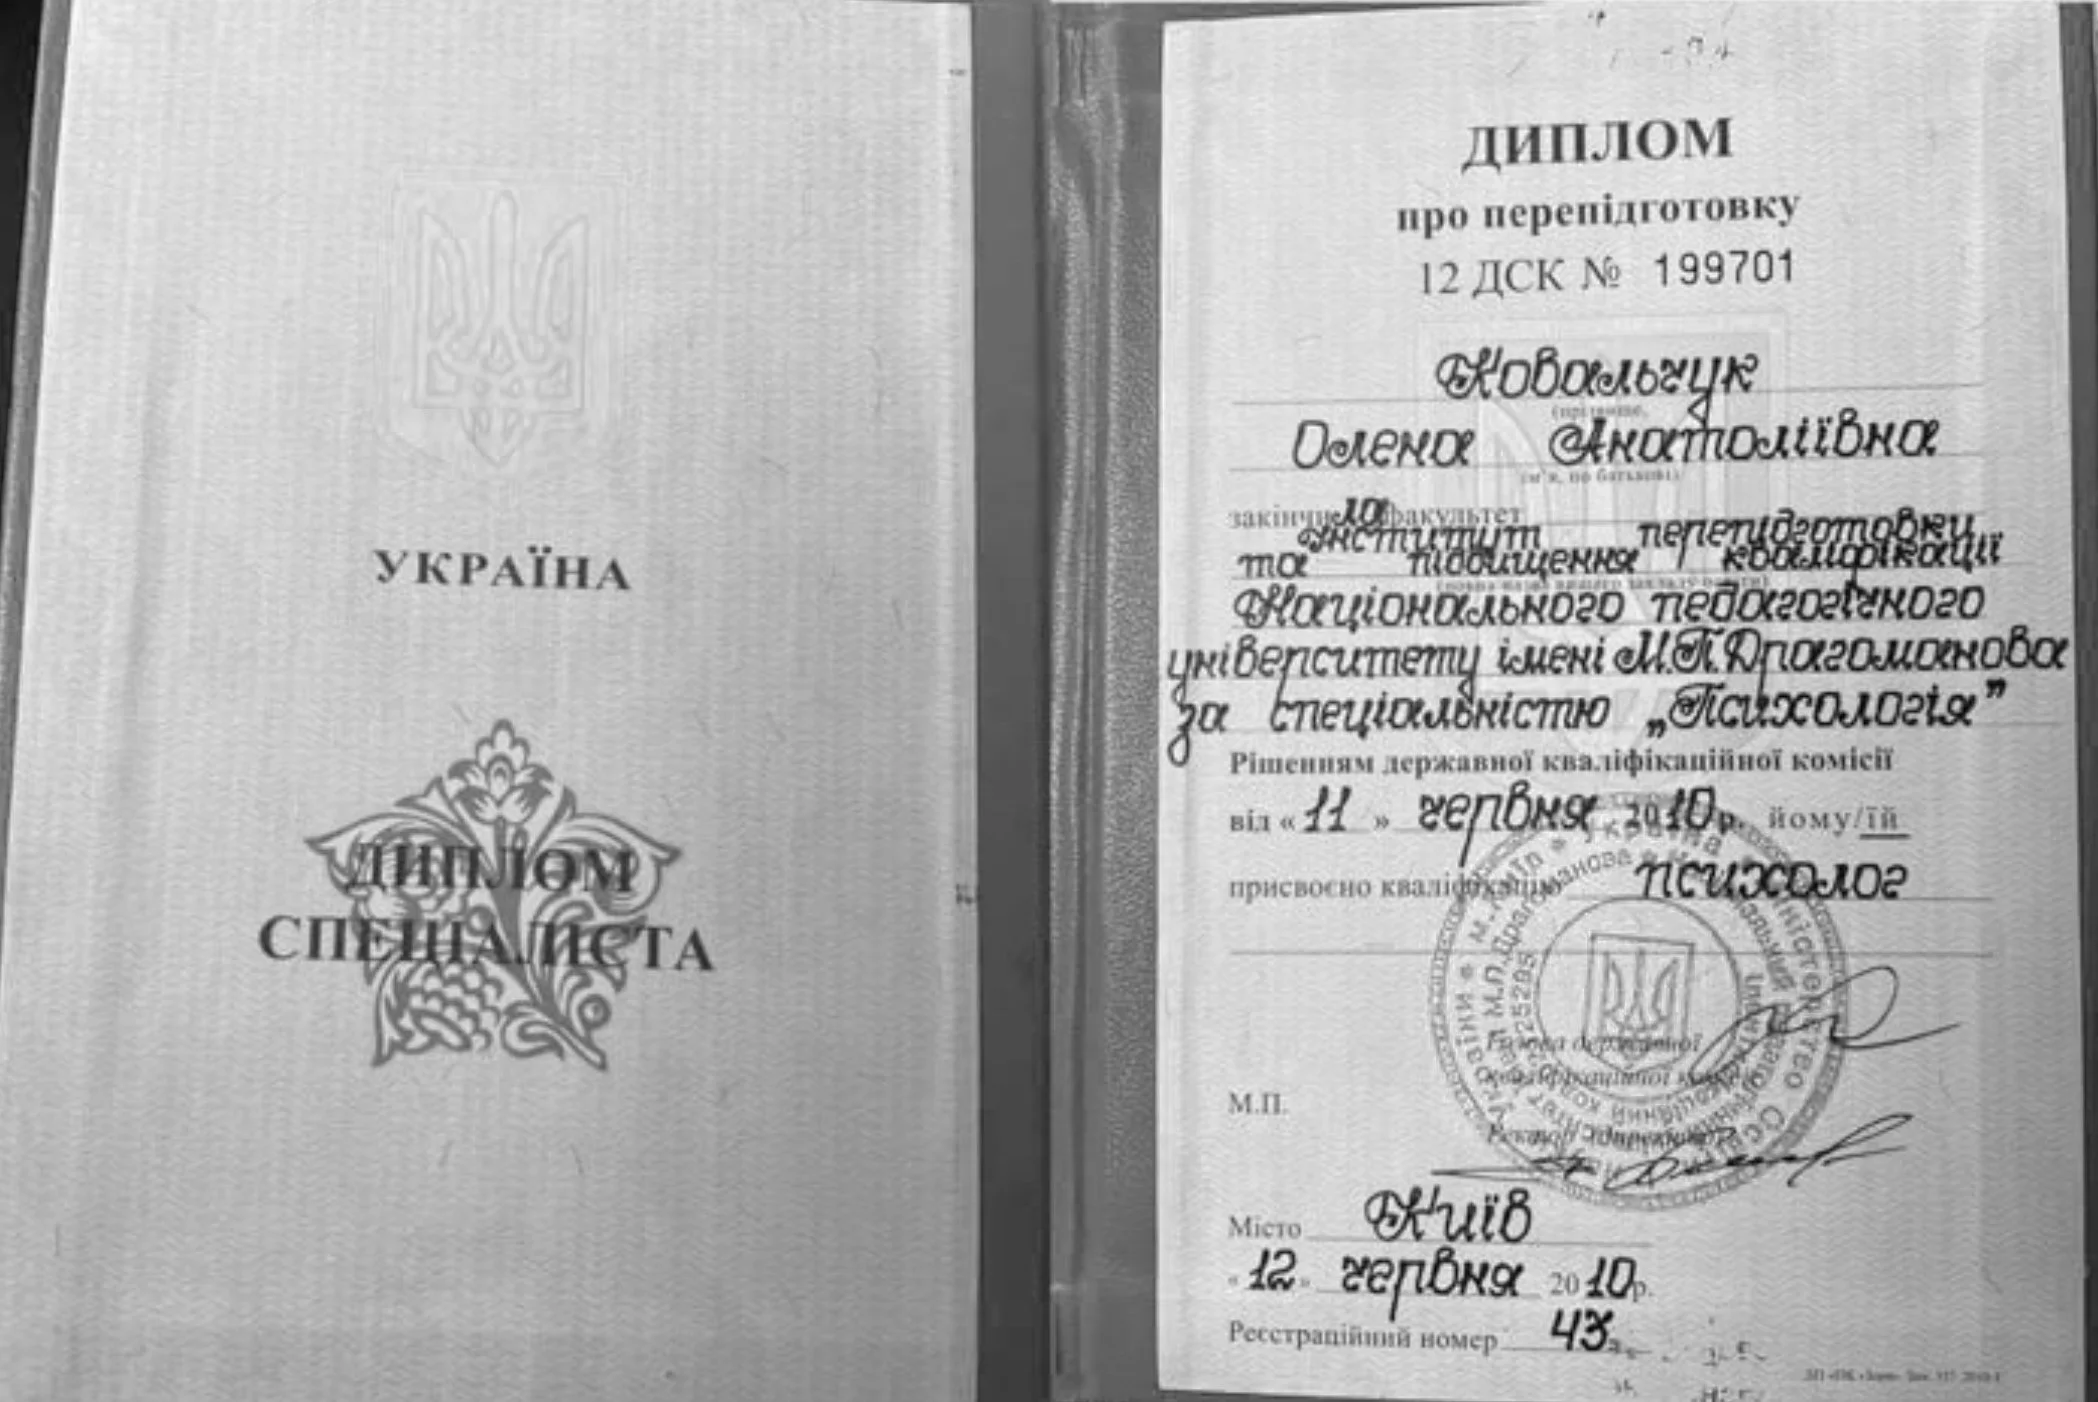 УКРАЇНА
ДИПЛОМ
СПЕЦІАЛІСТА
ДИПЛОМ
про перепідготовку
12 ДСК № 199701
Ковальчук
(прізвище,
Олена Анатоліївна
ім'я, по батькові)
закінчила факультет
Інститут перепідготовки
та підвищення кваліфікації
(повна назва вищого закладу освіти)
Національного педагогічного
університету імені М.П.Драгоманова
за спеціальністю „Психологія”
Рішенням державної кваліфікаційної комісії
від «11» червня 2010р. йому/їй
присвоєно кваліфікацію психолог
Голова державної
кваліфікаційної комісії
М.П.
Ректор
Місто Київ
«12» червня 2010р.
Реєстраційний номер 43